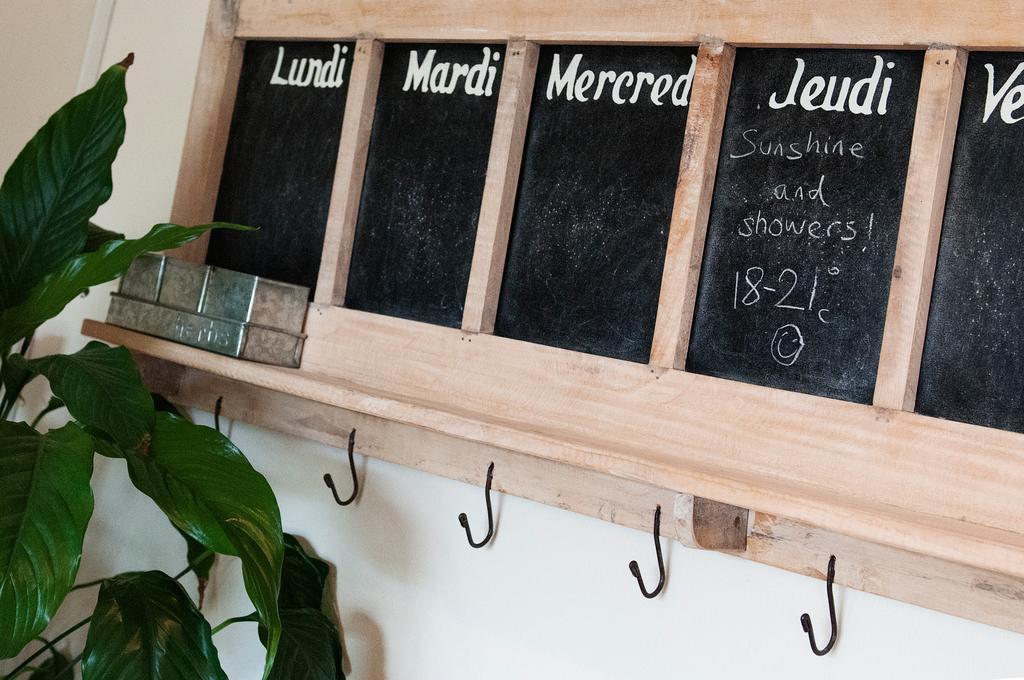 Lundi
Mardi
Mercred
Jeudi
Ve
Sunshine
and
showers!
18-21°c
Herbs